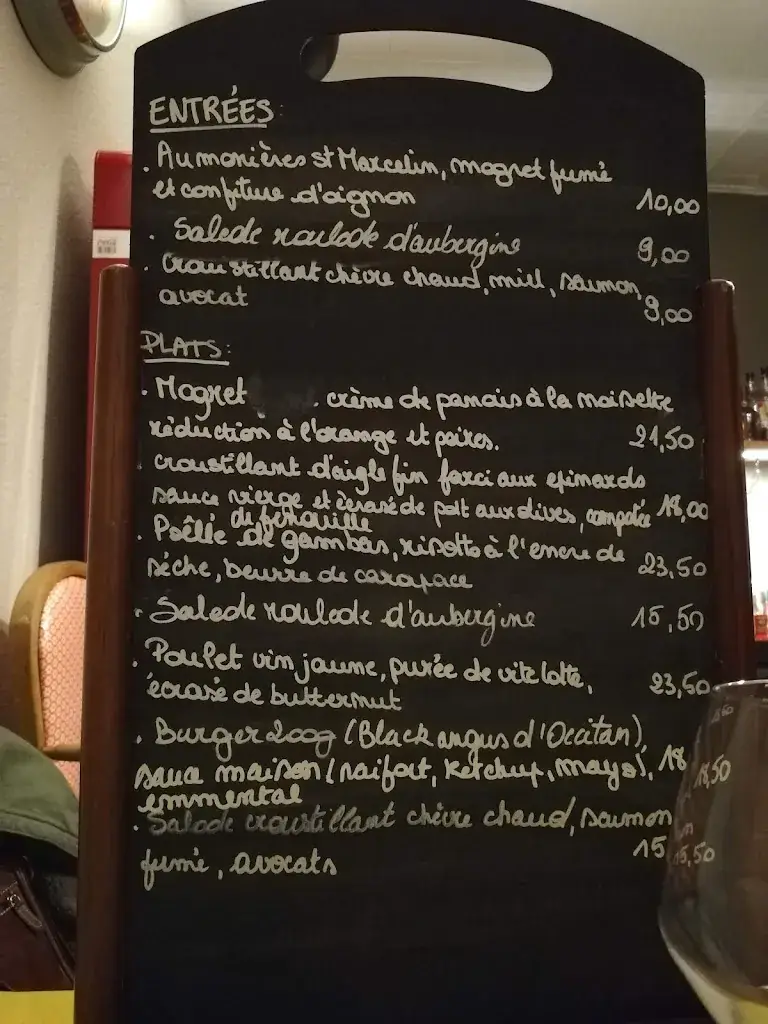 ENTRÉES:
. Aumonières st Marcelin, magret fumé
et confiture d'oignon 10,00
. Salade roulade d'aubergine 9,00
. Croustillant chèvre chaud, miel, saumon,
avocat 9,00
PLATS:
. Magret . crème de panais à la noisette
réduction à l'orange et poires. 21,50
croustillant d'aigle fin farci aux epinards
sauce vierge et écrasé de pdt aux olives, compotée 18,00
de fenouille
. Poêlée de gambas, risotto à l'encre de
sèche, beurre de carapace 23,50
. Salade roulade d'aubergine 15,50
. Poulet vin jaune, purée de vitelotte,
écrasé de butternut 23,50
. Burger 200g (Black angus d'Occitan),
sauce maison (raifort, ketchup, mayo), 18,50
emmental
. Salade croustillant chèvre chaud, saumon
fumé, avocats 15,50